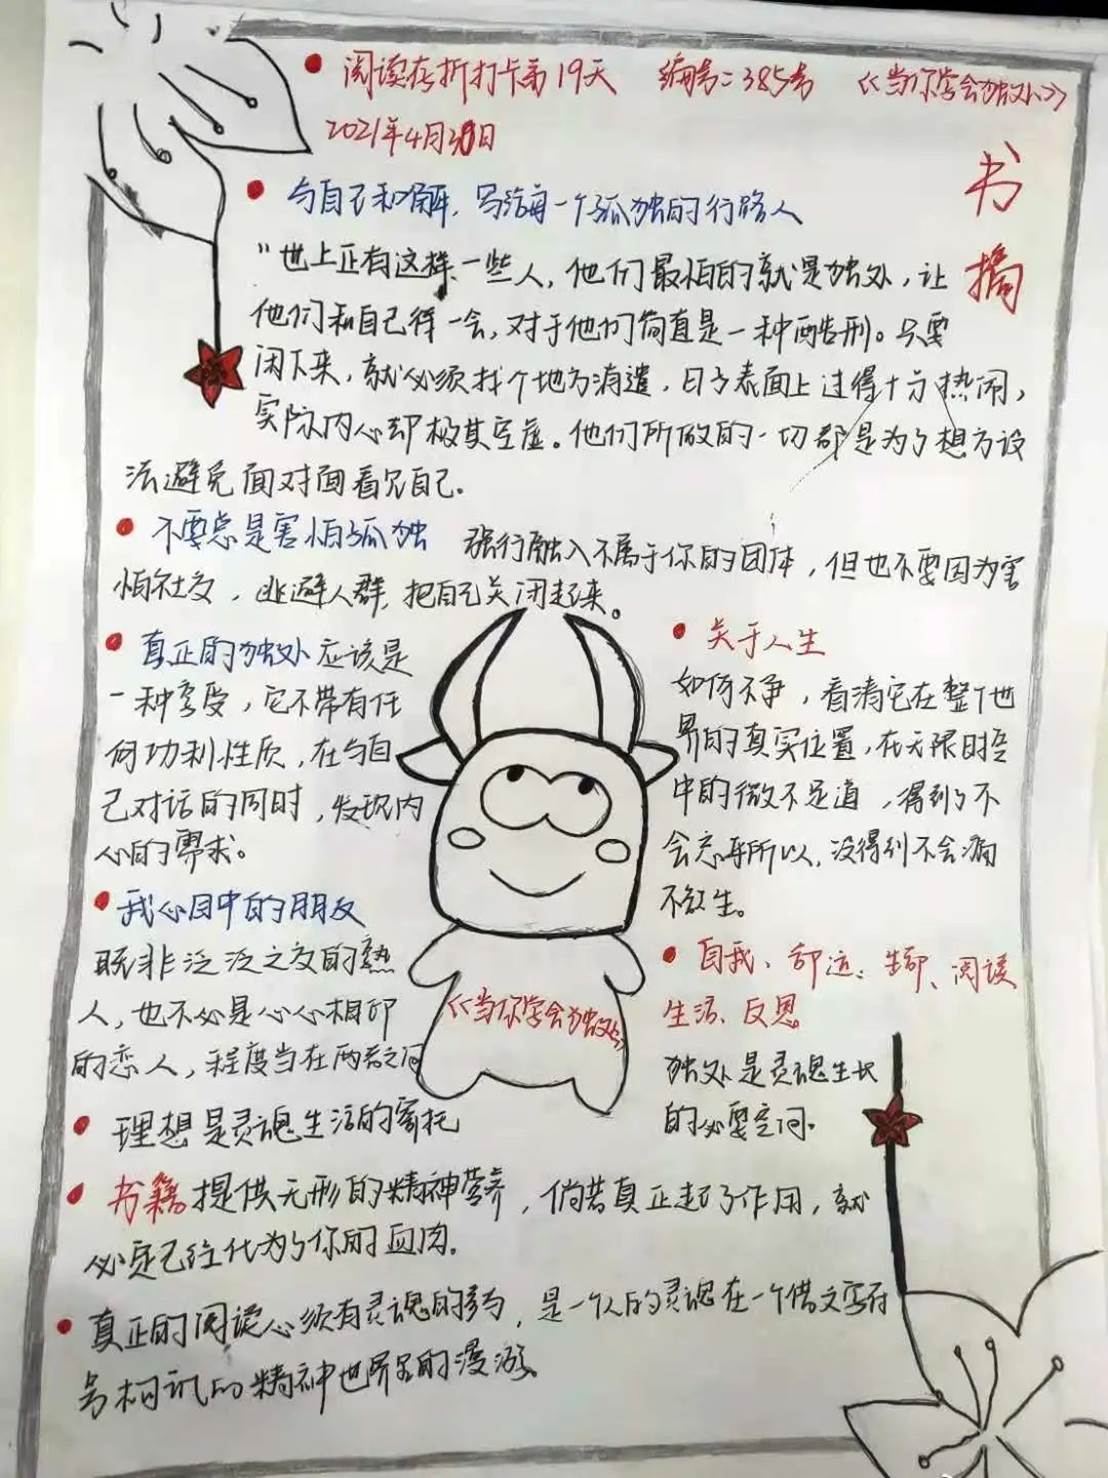 阅读在折打卡第19天 编号:385号 《当你学会独处》
2021年4月30日
书摘
与自己和解,写给每一个孤独的行路人
"世上正有这样一些人,他们最怕的就是独处,让
他们和自己待一会,对于他们简直是一种酷刑。只要
闲下来,就必须找个地方消遣,日子表面上过得十分热闹,
实际内心却极其空虚。他们所做的一切都是为了想方设
法避免面对面看见自己.
不要总是害怕孤独 强行融入不属于你的团体,但也不要因为害
怕社交,逃避人群,把自己关闭起来。
真正的独处应该是
一种享受,它不带有任
何功利性质,在与自
己对话的同时,发现内
心的需求。
我心目中的朋友
既非泛泛之交的熟
人,也不必是心心相印
的恋人,程度当在两者之间
《当你学会独处》
关于人生
如何不争,看清它在整个世
界的真实位置,在无限时空
中的微不足道,得到了不
会忘乎所以,没得到不会痛
不欲生。
自我、 阅读
生活、反思
独处是灵魂生长
的必要空间.
理想是灵魂生活的寄托
书籍提供无形的精神营养,倘若真正起了作用,就
必定已经化为了你的血肉.
真正的阅读必须有灵魂的参与,是一个人的灵魂在一个借文字符
号构筑的精神世界里的漫游。